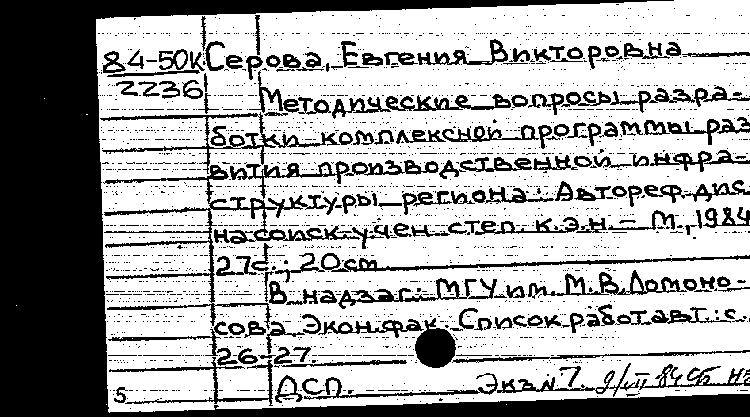 84-50к Серова, Евгения Викторовна
2236
Методические вопросы разра-
ботки комплексной программы раз
вития производственной инфра-
структуры региона: Автореф. дис
на соиск. учен. степ. к.э.н. – М., 1984
27с.; 20см
В надзаг.: МГУ им. М.В. Ломоно-
сова. Экон. фак. Список работ авт.: с.
26-27.
5 ДСП. Экз № 7. 9/VII 84